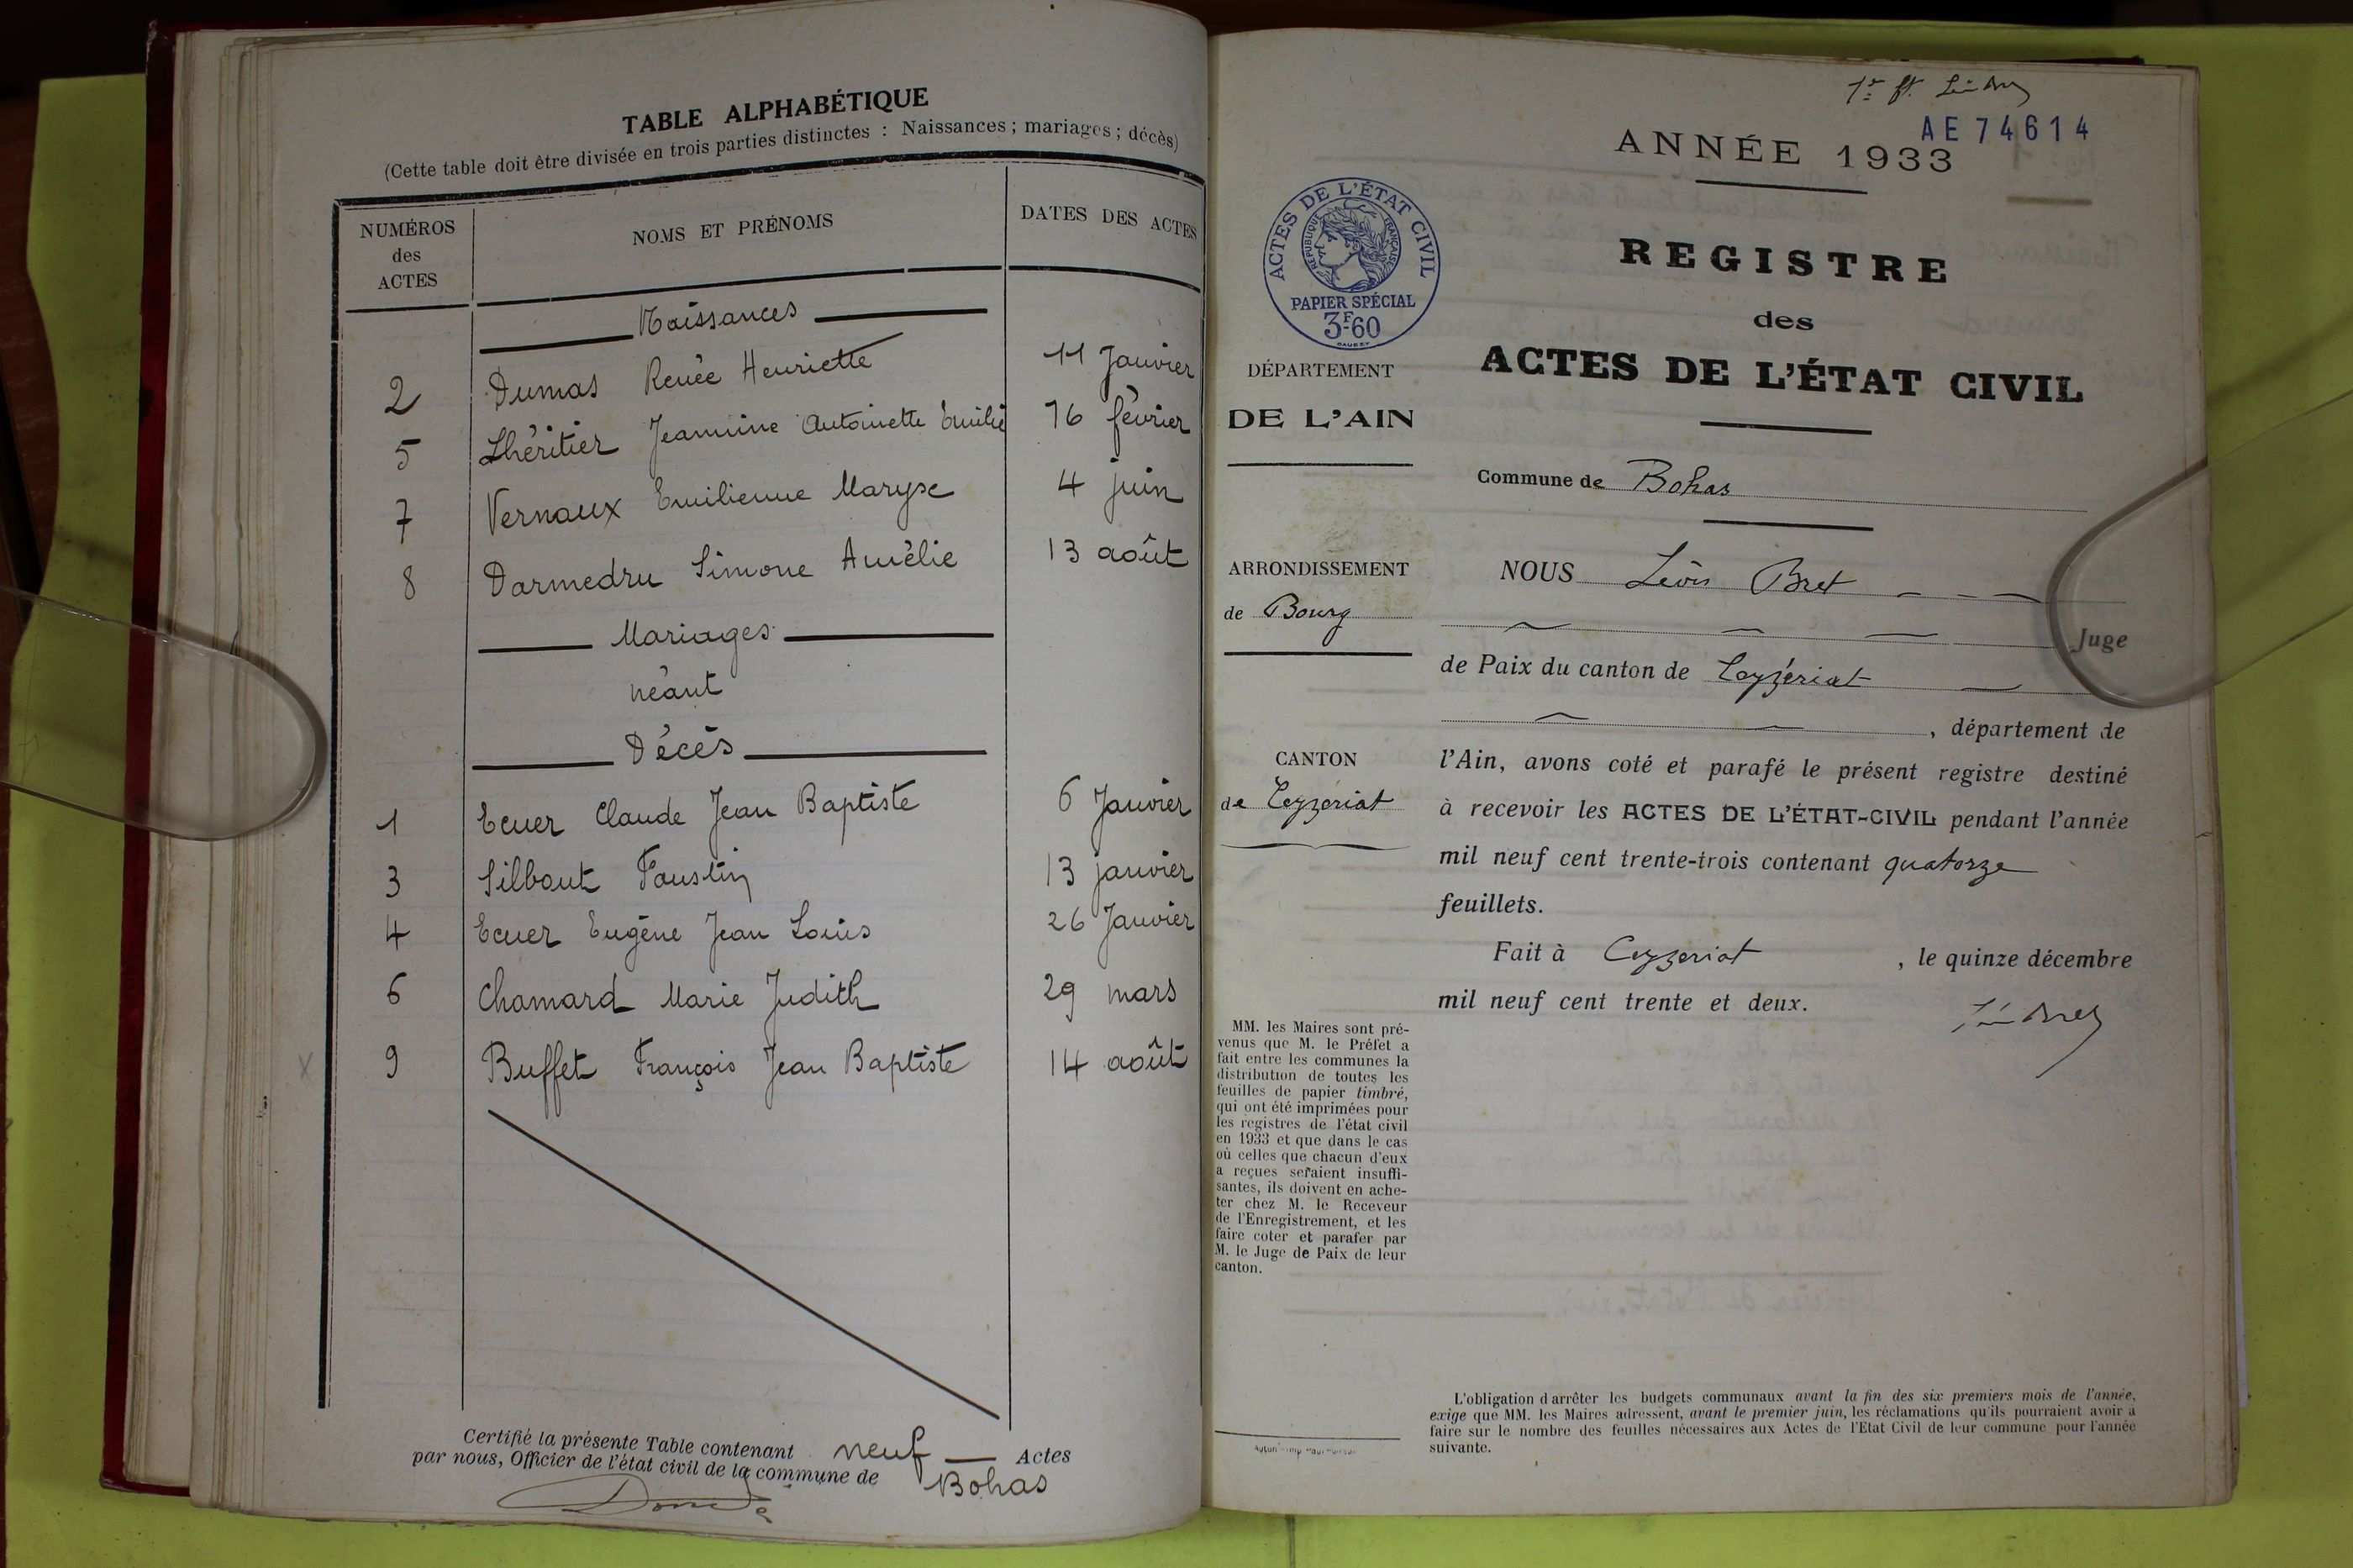 TABLE ALPHABÉTIQUE
(Cette table doit être divisée en trois parties distinctes : Naissances ; mariages ; décès)
NUMÉROS
des
ACTES
NOMS ET PRÉNOMS
DATES DES ACTES
Naissances
2 Dumas Renée Henriette 11 Janvier
5 Lhéritier Jeannine Antoinette Emilie 16 février
7 Vernaux Emilienne Maryse 4 juin
8 Darmedru Simone Amélie 13 août
Mariages
néant
Décès
1 Ecuer Claude Jean Baptiste 6 Janvier
3 Silbout Faustin 13 janvier
4 Ecuer Eugène Jean Louis 26 Janvier
6 Chamard Marie Judith 29 mars
9 Buffet François Jean Baptiste 14 août
Certifié la présente Table contenant neuf Actes
par nous, Officier de l'état civil de la commune de Bohas
AE 74614
ANNÉE 1933
REGISTRE
des
ACTES DE L'ÉTAT CIVIL
ACTES DE L'ÉTAT CIVIL
RÉPUBLIQUE FRANÇAISE
PAPIER SPÉCIAL
3F60
DÉPARTEMENT
DE L'AIN
ARRONDISSEMENT
de Bourg
CANTON
de Ceyzeriat
MM. les Maires sont pré-
venus que M. le Préfet a
fait entre les communes la
distribution de toutes les
feuilles de papier timbré,
qui ont été imprimées pour
les registres de l'état civil
en 1933 et que dans le cas
où celles que chacun d'eux
a reçues seraient insuffi-
santes, ils doivent en ache-
ter chez M. le Receveur
de l'Enregistrement, et les
faire coter et parafer par
M. le Juge de Paix de leur
canton.
Commune de Bohas
NOUS Léon Bret
Juge
de Paix du canton de Ceyzériat
, département de
l'Ain, avons coté et parafé le présent registre destiné
à recevoir les ACTES DE L'ÉTAT-CIVIL pendant l'année
mil neuf cent trente-trois contenant quatorze
feuillets.
Fait à Ceyzeriat , le quinze décembre
mil neuf cent trente et deux.
L'obligation d'arrêter les budgets communaux avant la fin des six premiers mois de l'année,
exige que MM. les Maires adressent, avant le premier juin, les réclamations qu'ils pourraient avoir à
faire sur le nombre des feuilles nécessaires aux Actes de l'Etat Civil de leur commune pour l'année
suivante.